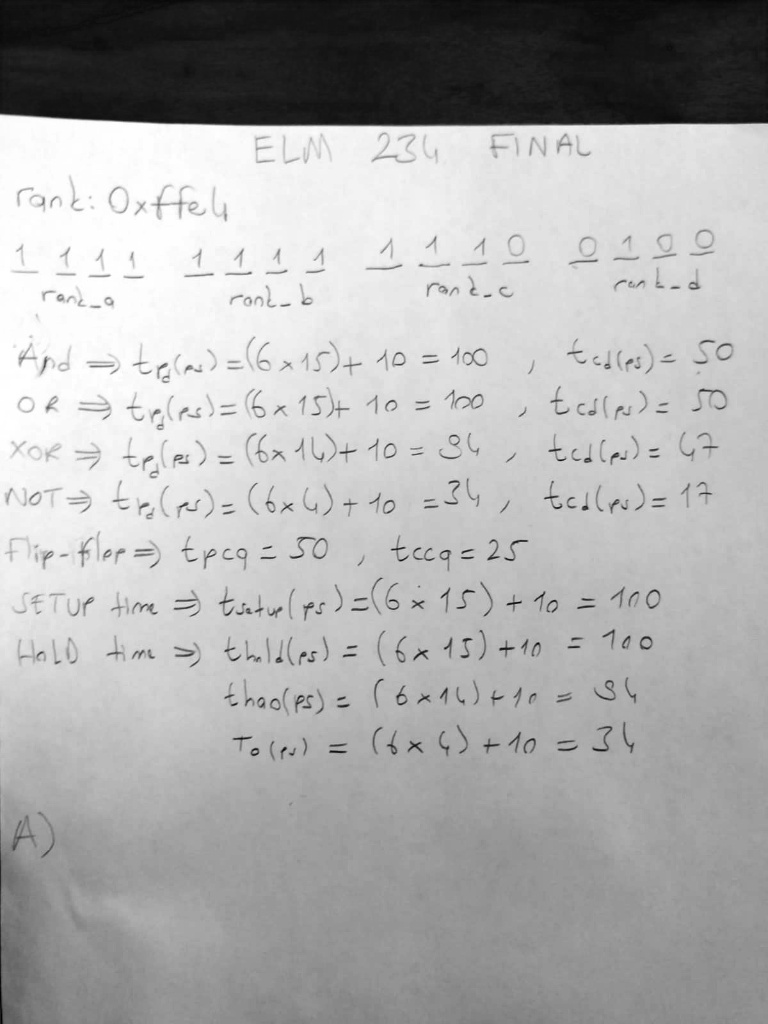 ELM 234 FINAL
rank: 0xffe4
1 1 1 1 1 1 1 1 1 1 1 0 0 1 0 0
rank_a rank_b rank_c rank_d
And ⇒ tpd(ps) = (6x15)+ 10 = 100 , tcd(ps) = 50
OR ⇒ tpd(ps) = (6x15)+ 10 = 100 , tcd(ps) = 50
XOR ⇒ tpd(ps) = (6x14)+ 10 = 94 , tcd(ps) = 47
NOT ⇒ tpd(ps) = (6x4) + 10 = 34 , tcd(ps) = 17
Flip-flop ⇒ tpcq = 50 , tccq = 25
SETUP time ⇒ tsetup(ps) = (6x15) + 10 = 100
HOLD time ⇒ thold(ps) = (6x15) + 10 = 100
thao(ps) = (6x14) + 10 = 94
To(ps) = (6x4) + 10 = 34
A)